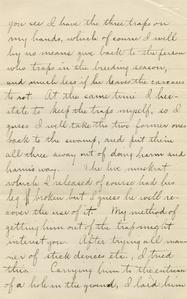 you see I have the three traps on
my hands, which of course I will
by no means give back to the person
who traps in the breeding season,
and much less if he leaves the carcases
to rot. At the same time I hes-
itate to keep the traps myself, so I
guess I will take the two former ones
back to the swamp, and put them
all three away out of doing harm and
harm's way. The live muskrat
which I released of course had his
leg broken but I guess he will re-
cover the use of it. My method of
getting him out of the trap might
interest you. After trying all man-
ner of stick devices etc., I tried
this. Carrying him to the entrance
of a hole in the ground, I laid him